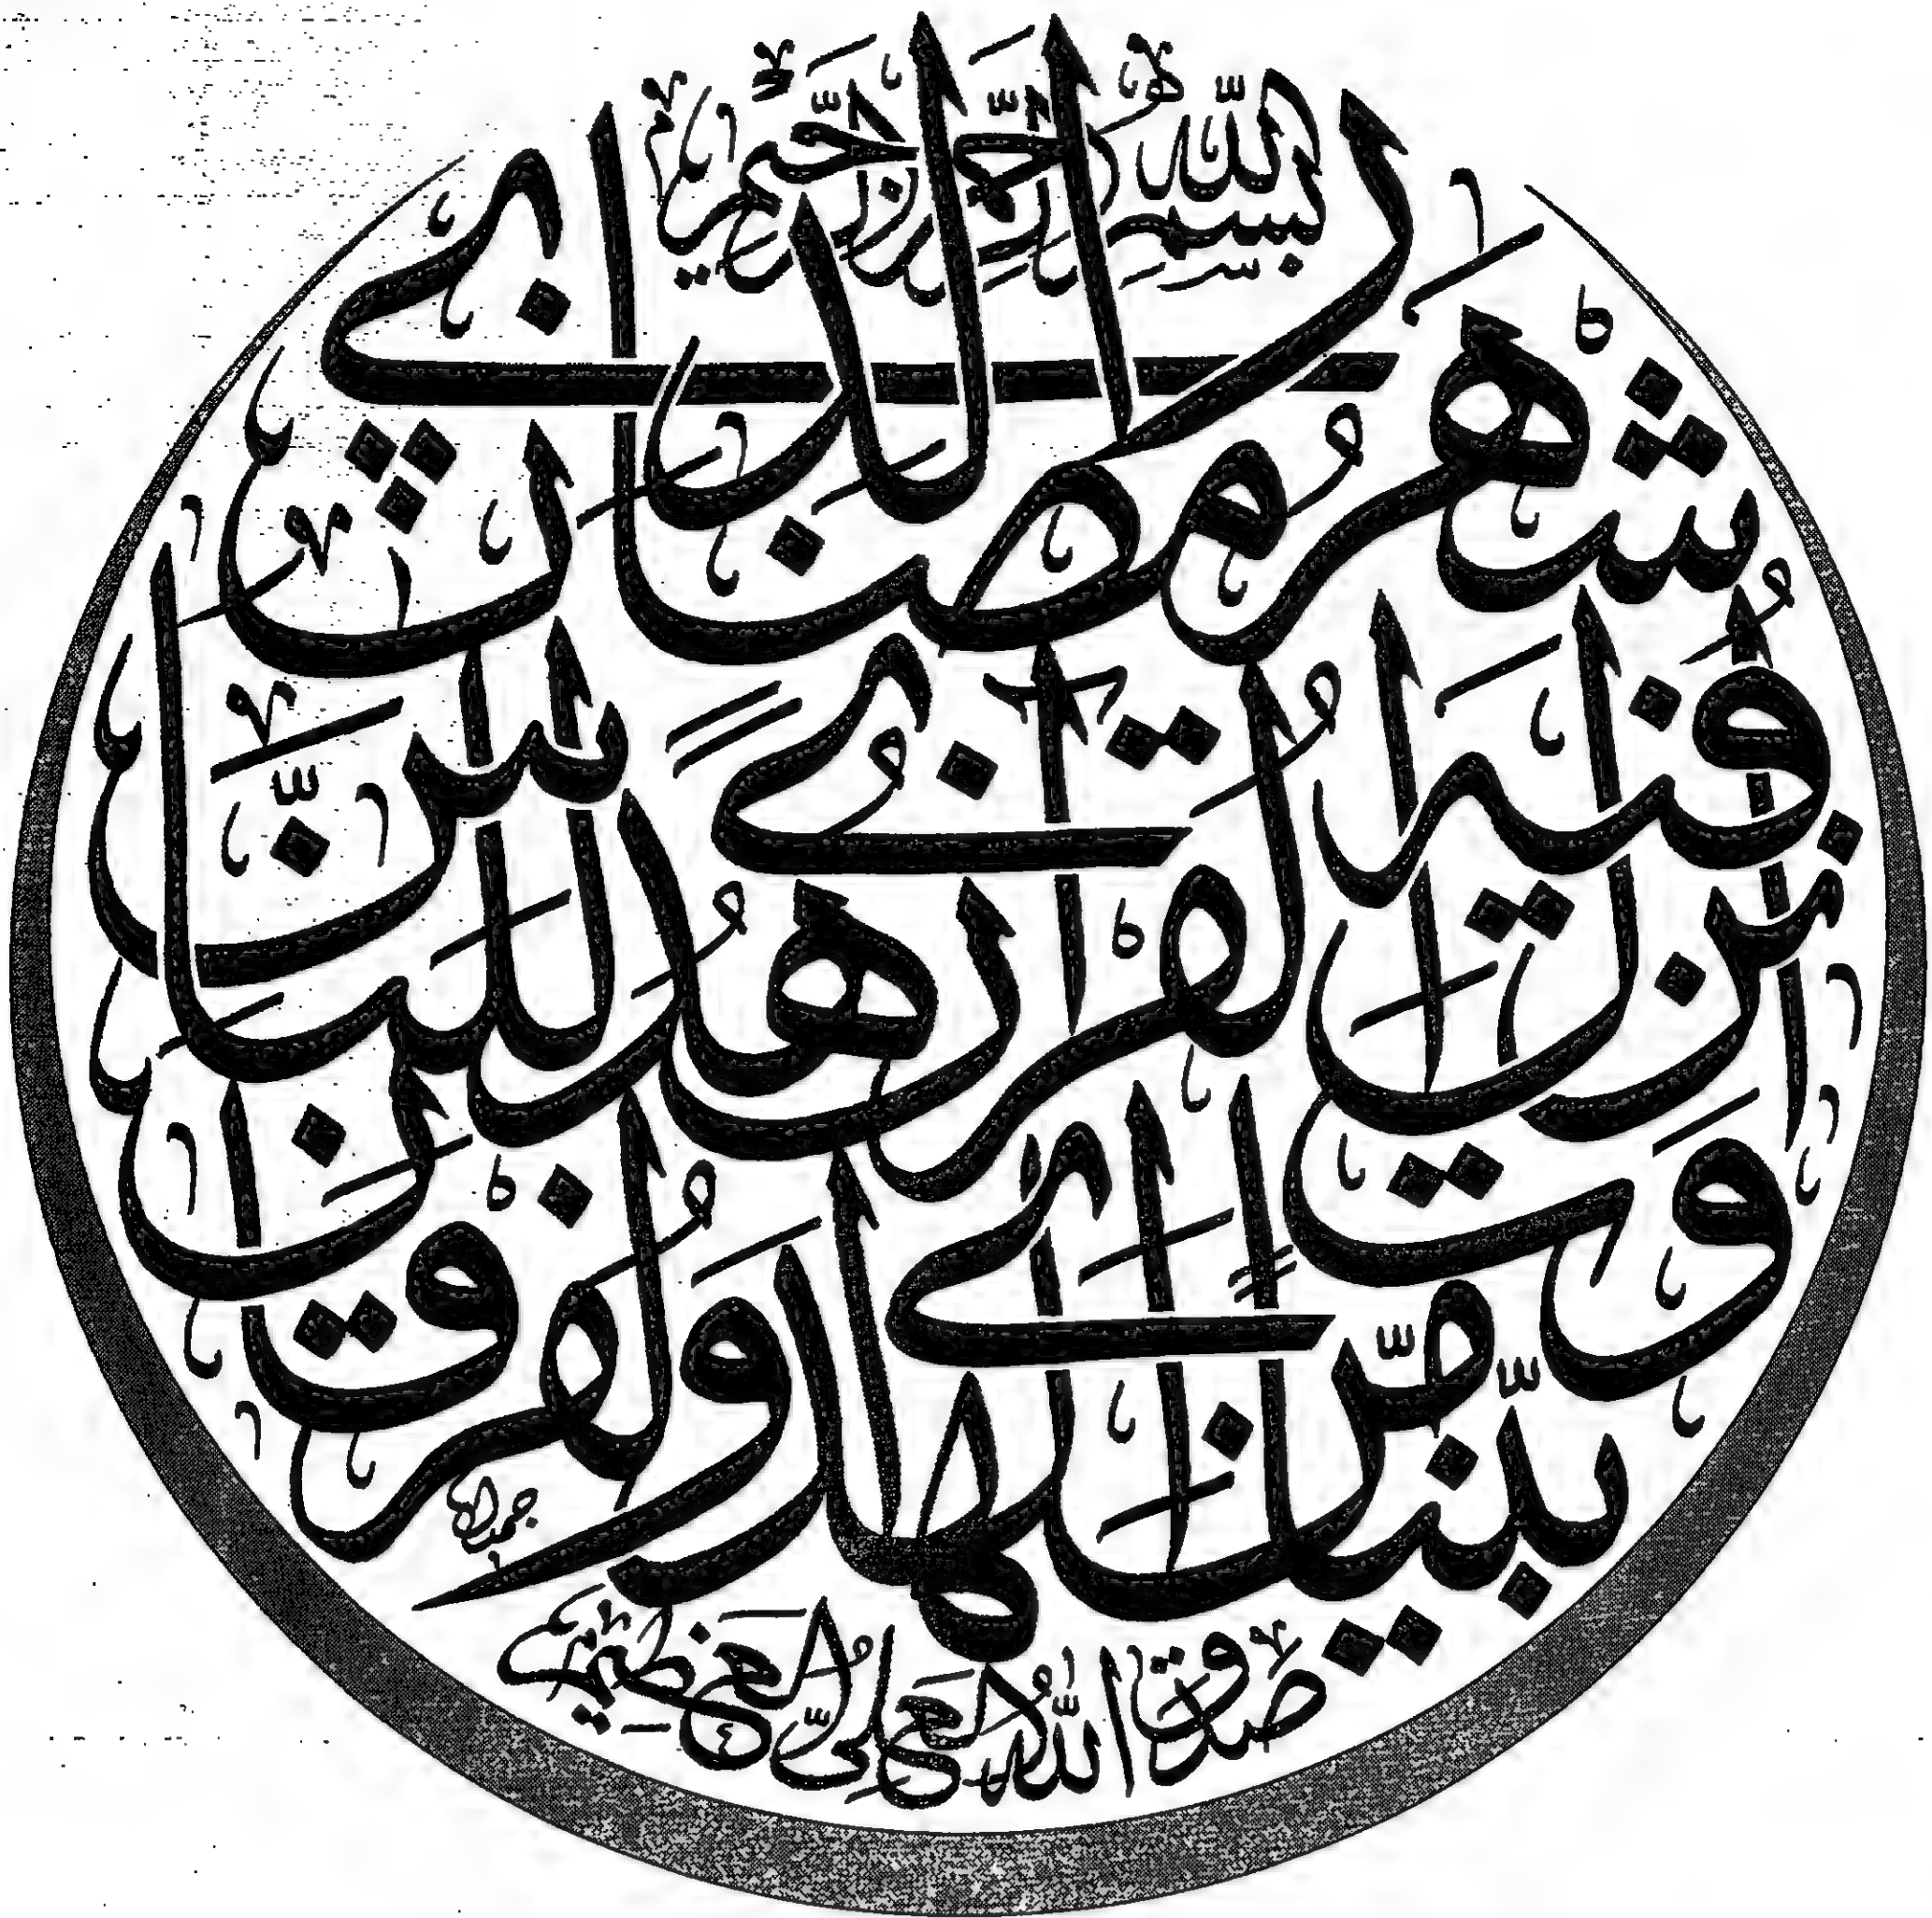 بِسْمِ اللَّهِ الرَّحْمَٰنِ الرَّحِيمِ
شَهْرُ رَمَضَانَ الَّذِي
أُنْزِلَ فِيهِ الْقُرْآنُ هُدًى لِلنَّاسِ
وَبَيِّنَاتٍ مِنَ الْهُدَىٰ وَالْفُرْقَانِ
صَدَقَ اللَّهُ الْعَلِيُّ الْعَظِيمُ